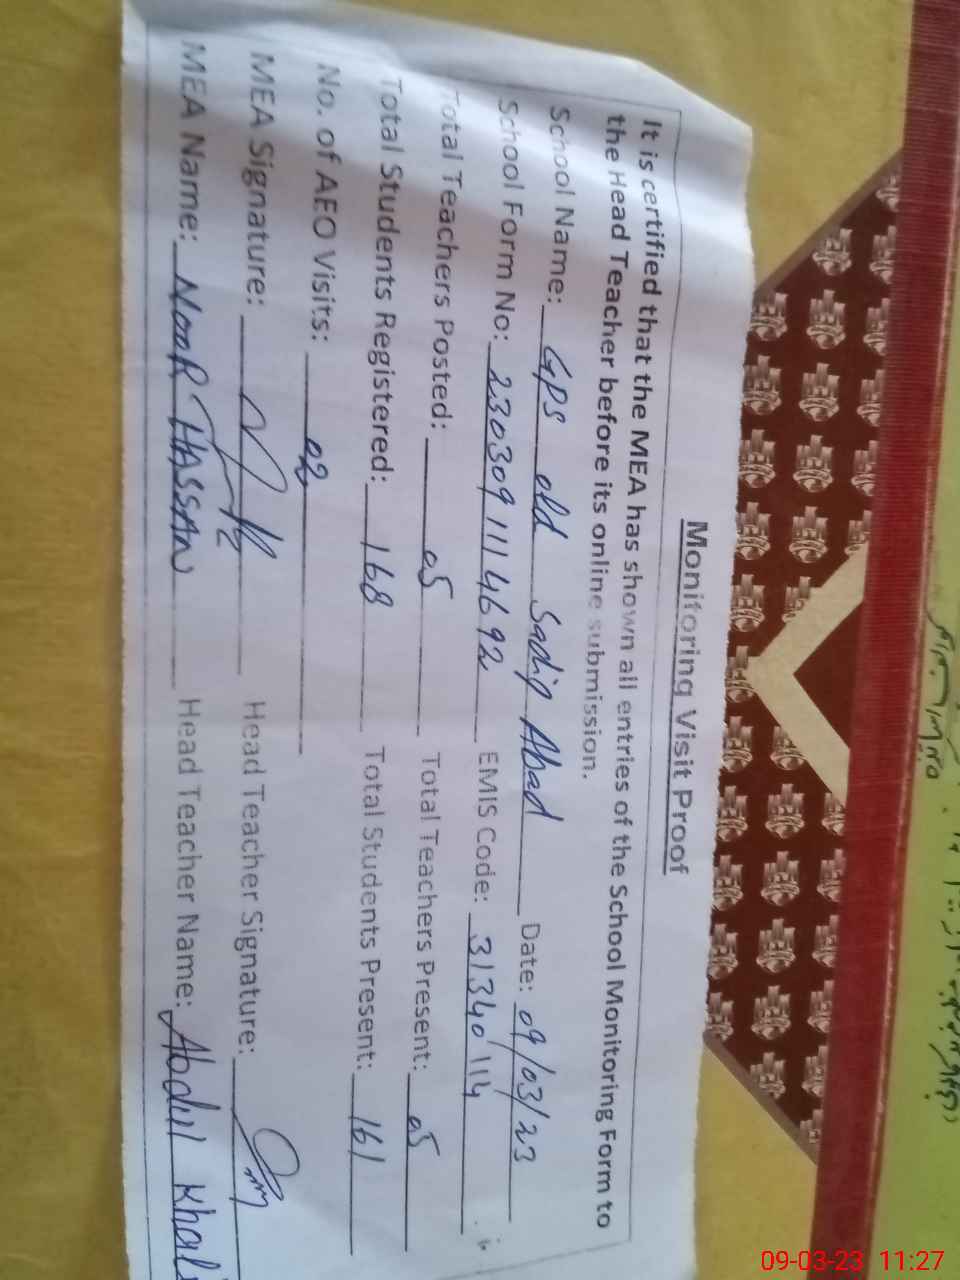 Monitoring Visit Proof
It is certified that the MEA has shown all entries of the School Monitoring Form to
the Head Teacher before its online submission.
School Name: GPS old Sadiq Abad Date: 09/03/23
School Form No: 2303091114692 EMIS Code: 31340114
Total Teachers Posted: 05 Total Teachers Present: 05
Total Students Registered: 168 Total Students Present: 161
No. of AEO Visits: 02
MEA Signature: Head Teacher Signature:
MEA Name: NOOR HASSAN Head Teacher Name: Abdul Khal
09-03-23 11:27